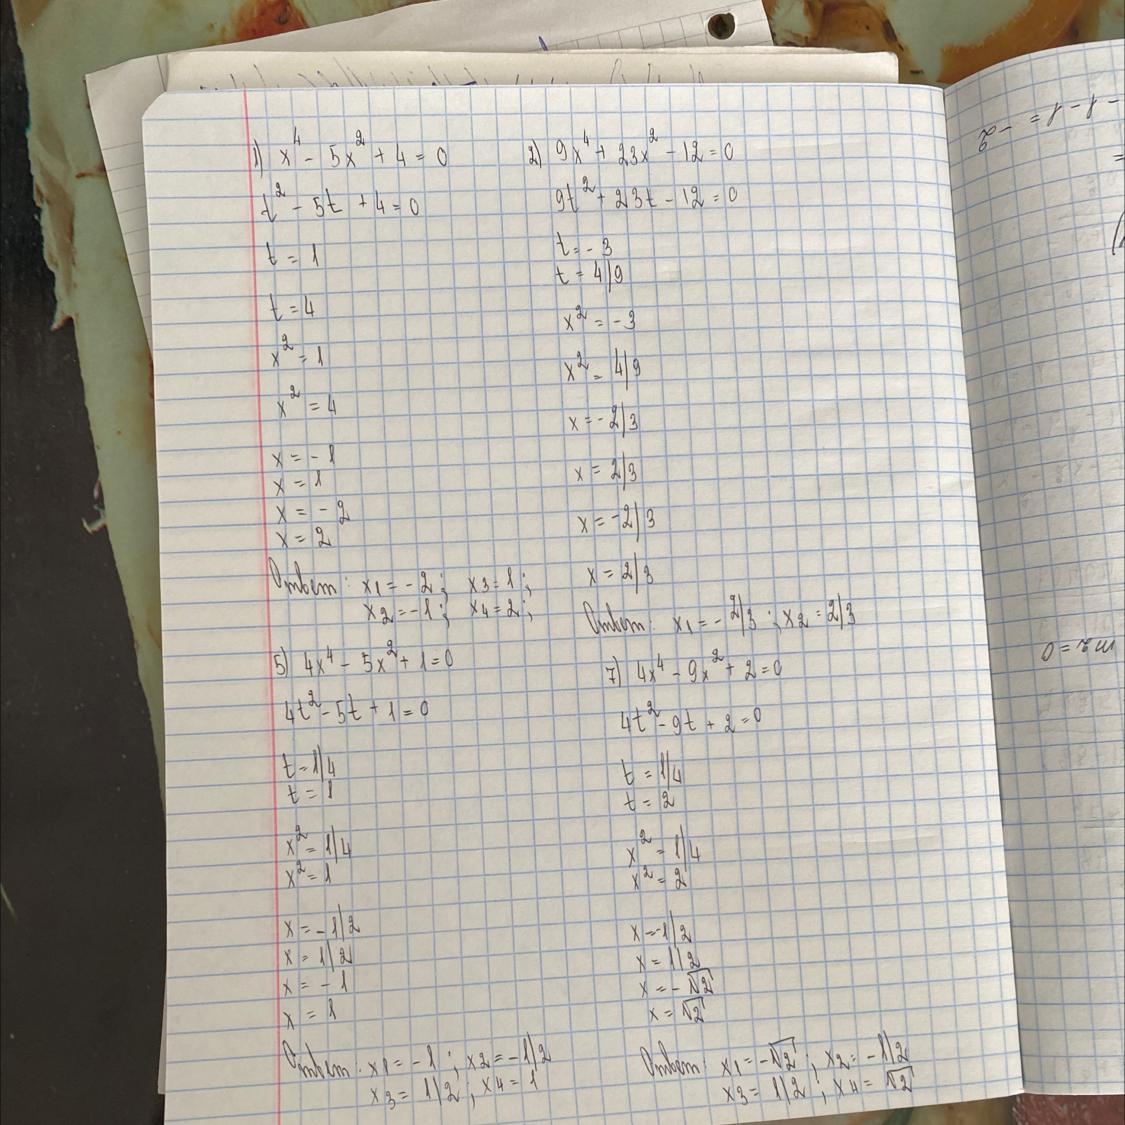 1) x⁴ - 5x² + 4 = 0
t² - 5t + 4 = 0
t = 1
t = 4
x² = 1
x² = 4
x = - 1
x = 1
x = - 2
x = 2
Ответ: x1 = - 2; x3 = 1;
x2 = -1; x4 = 2;
2) 9x⁴ + 23x² - 12 = 0
9t² + 23t - 12 = 0
t = - 3
t = 4/9
x² = -3
x² = 4/9
x = - 2/3
x = 2/3
x = -2/3
x = 2/3
Ответ: x1 = - 2/3; x2 = 2/3
5) 4x⁴ - 5x² + 1 = 0
4t² - 5t + 1 = 0
t = 1/4
t = 1
x² = 1/4
x² = 1
x = - 1/2
x = 1/2
x = - 1
x = 1
Ответ: x1 = - 1; x2 = - 1/2
x3 = 1/2; x4 = 1
7) 4x⁴ - 9x² + 2 = 0
4t² - 9t + 2 = 0
t = 1/4
t = 2
x² = 1/4
x² = 2
x = -1/2
x = 1/2
x = - √2
x = √2
Ответ: x1 = -√2; x2 = - 1/2
x3 = 1/2; x4 = √2
- 1 - 1 = - 2
m2 = 0